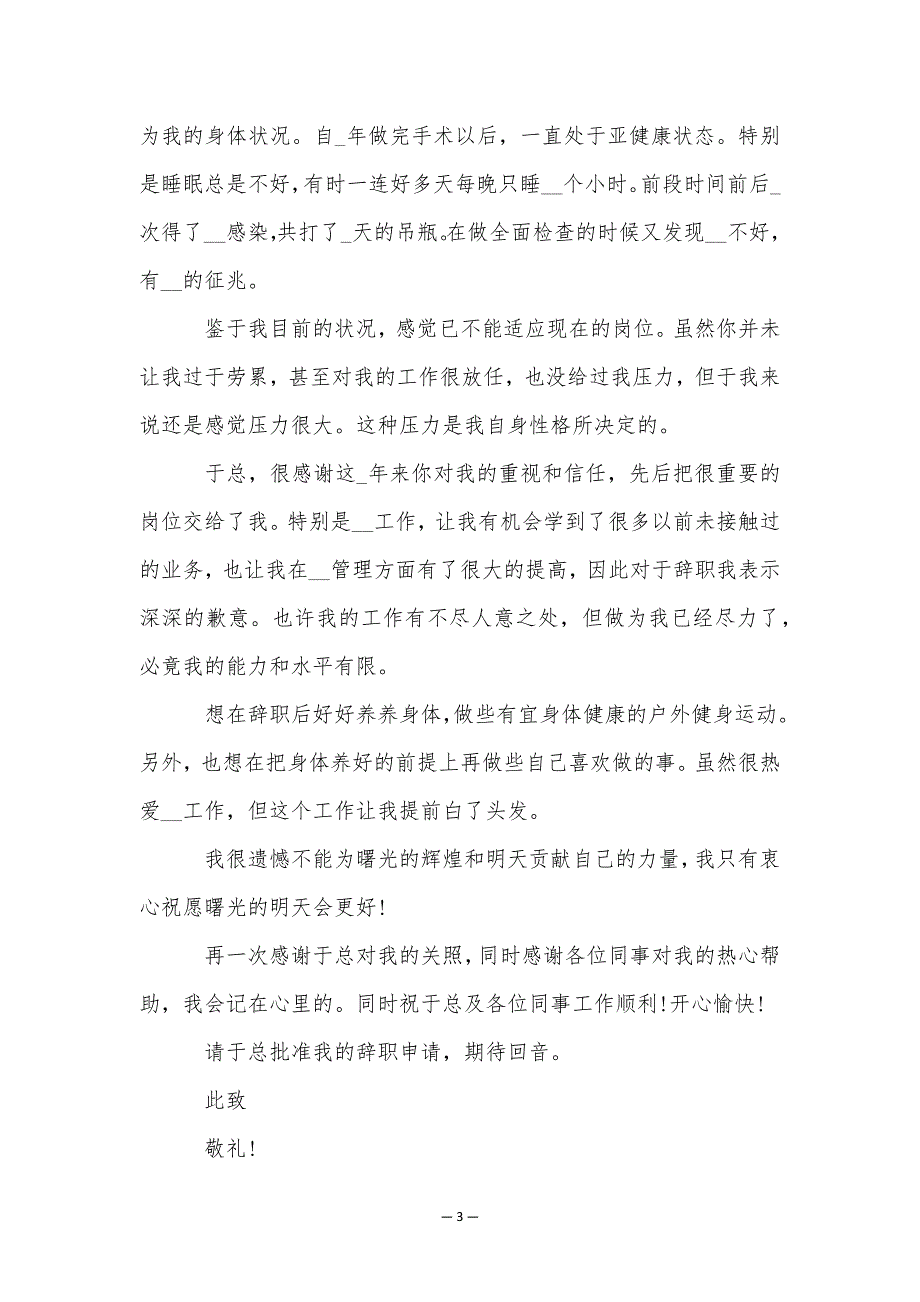 为我的身体状况。自_年做完手术以后，一直处于亚健康状态。特别
是睡眠总是不好,有时一连好多天每晚只睡__个小时。前段时间前后_
次得了__感染,共打了_天的吊瓶。在做全面检查的时候又发现__不好，
有__的征兆。
鉴于我目前的状况，感觉已不能适应现在的岗位。虽然你并未
让我过于劳累，甚至对我的工作很放任，也没给过我压力，但于我来
说还是感觉压力很大。这种压力是我自身性格所决定的。
于总，很感谢这_年来你对我的重视和信任，先后把很重要的
岗位交给了我。特别是__工作，让我有机会学到了很多以前未接触过
的业务，也让我在__管理方面有了很大的提高，因此对于辞职我表示
深深的歉意。也许我的工作有不尽人意之处，但做为我已经尽力了，
必竟我的能力和水平有限。
想在辞职后好好养养身体,做些有宜身体健康的户外健身运动。
另外,也想在把身体养好的前提上再做些自己喜欢做的事。虽然很热
爱__工作，但这个工作让我提前白了头发。
我很遗憾不能为曙光的辉煌和明天贡献自己的力量,我只有衷
心祝愿曙光的明天会更好!
再一次感谢于总对我的关照,同时感谢各位同事对我的热心帮
助，我会记在心里的。同时祝于总及各位同事工作顺利!开心愉快!
请于总批准我的辞职申请，期待回音。
此致
敬礼!
— 3 —